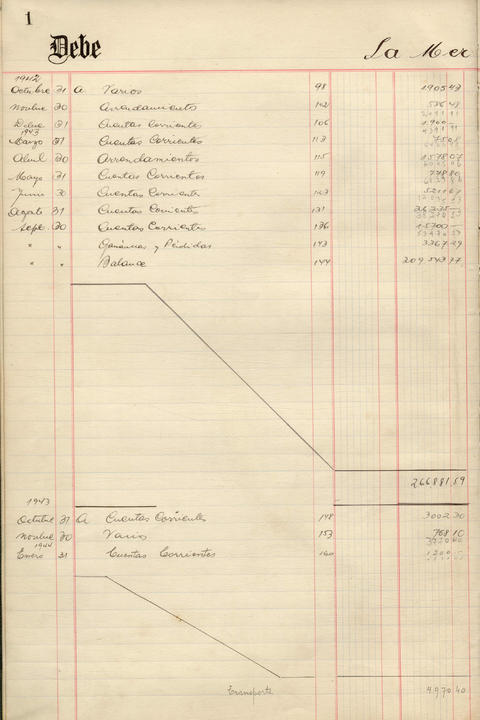 1
Debe La Mer
1942
Octubre 31 A Varios 98 1905 43
Novbre 30 Arrendamientos 102
Dcbre 31 Cuentas Corrientes 106 1.900
1943
Marzo 31 Cuentas Corrientes 113 7508
Abril 30 Arrendamientos 115 1578 07
Mayo 31 Cuentas Corrientes 119 778 80
Junio 30 Cuentas Corriente 123
Agosto 31 Cuentas Corrientes 131
Sept. 30 Cuentas Corrientes 136 15700
" " Ganancias y Pérdidas 143 3367 29
" " Balance 144 209543 77
266881,59
1943
Octubre 31 A Cuentas Corrientes 148 3002 30
Novbre 30 Varios 153 768 10
1944
Enero 31 Cuentas Corrientes 160 1200
Transporte 4.970 40